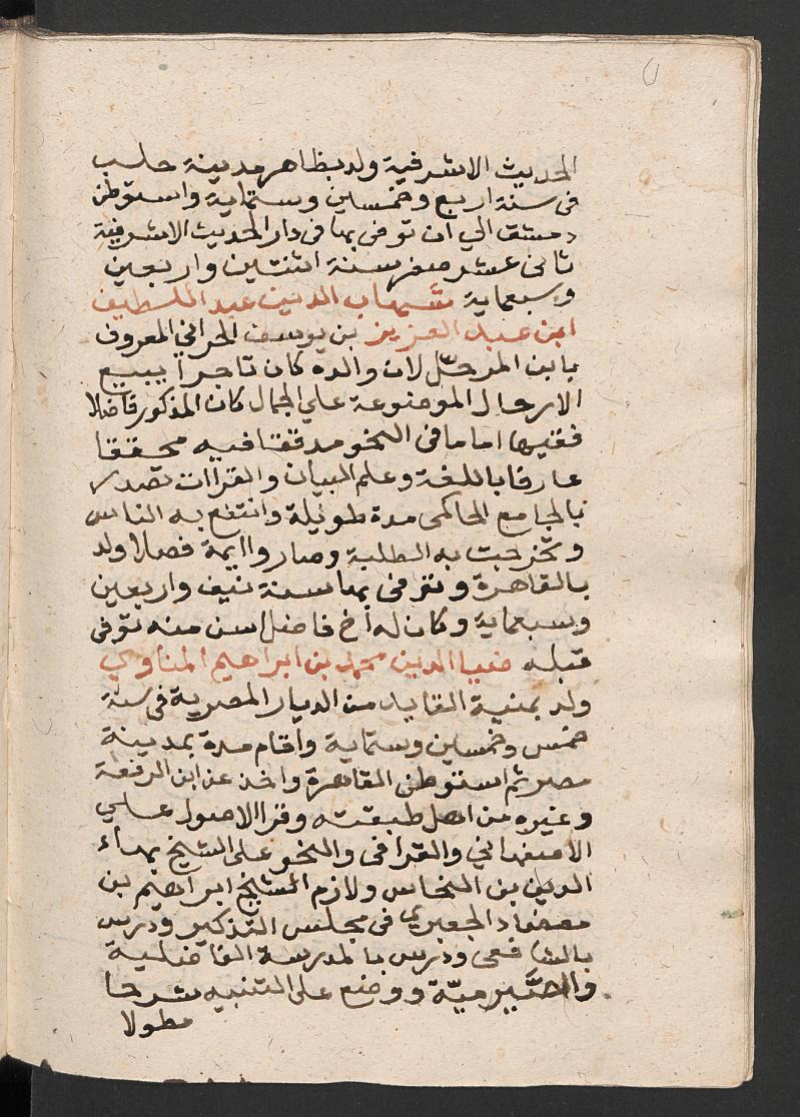 الحديث الاشرفية ولد بظاهر مدينة حلب
فى سنة اربع وخمسين وستماية واستوطن
دمشق الي ان توفى بها فى دار الحديث الاشرفية
ثانى عشر صفر سنة اثنتين واربعين
وسبعماية شهاب الدين عبد اللطيف
ابن عبد العزيز بن يوسف الحراني المعروف
بابن المرحّل لان والده كان تاجرا يبيع
الارحال الموضوعة علي الجمال كان المذكور فاضلا
فقيها اماما فى النحو مدققا فيه محققا
عارفا باللغة وعلم البيان والقراات تصدر
بالجامع الحاكمى مدة طويلة وانتفع به الناس
وتخرجت به الطلبة وصاروا ايمة فضلا ولد
بالقاهرة وتوفى بها سنة نيف واربعين
وسبعماية وكان له اخ فاضل اسن منه توفى
قبله ضيا الدين محمد بن ابراهيم المناوي
ولد بمنية القايد من الديار المصرية فى سنة
خمس وخمسين وستماية واقام مدة بمدينة
مصر ثم استوطن القاهرة واخذ عن ابن الرفعة
وغيره من اهل طبقته وقرا الاصول علي
الاصفهاني والقرافى والنحو على الشيخ بهاء
الدين بن النحاس ولازم الشيخ ابراهيم بن
معضاد الجعبري فى مجلس التذكير ودرس
بالشافعى ودرس بالمدرسة الفاضلية
ووضع على التنبيه شرحا
مطولا